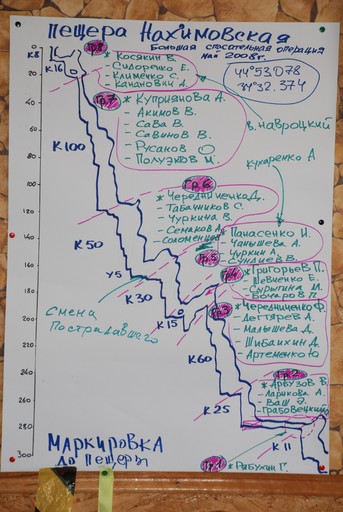 Пещера Нахимовская
Большая спасательная операция
май 2008г.
44°53.078
34°32.374
Гр.8
* Косякин В.
- Сидоренко Е.
- Клименко С.
- Канданович А.
Гр.7
* Куприянова А.
- Акимов В.
- Сава В.
- Савинов В.
- Русаков
- Полуэктов М.
в. Навроцкий
Кухаренко А
Гр.6
* Чередниченко Д.
- Табанников С.
- Чуркина В.
- Семаков А.
- Соломенцев
* Панасенко И.
- Чанышева А.
- Чуркин А.
Гр.5
Гр.4
* Григорьев П.
- Шевченко Е.
- Сырытина М.
- Бочаров П.
Гр.3
* Чередниченко Ф.
- Дегтярев А.
- Малышева Д.
- Шибаихин Д.
- Артеменко Ю
Гр.2
* Арбузов В.
- Ларикова А.
- Ваш Э.
- Грабовецкий
Гр.1
* Рябухин Г.
0
20
40
60
80
100
120
140
160
180
200
220
240
260
280
300
К8
К16
К100
К50
У5
К30
К15
К60
К25
К11
Смена
Пострадавшего
Маркировка
до пещеры